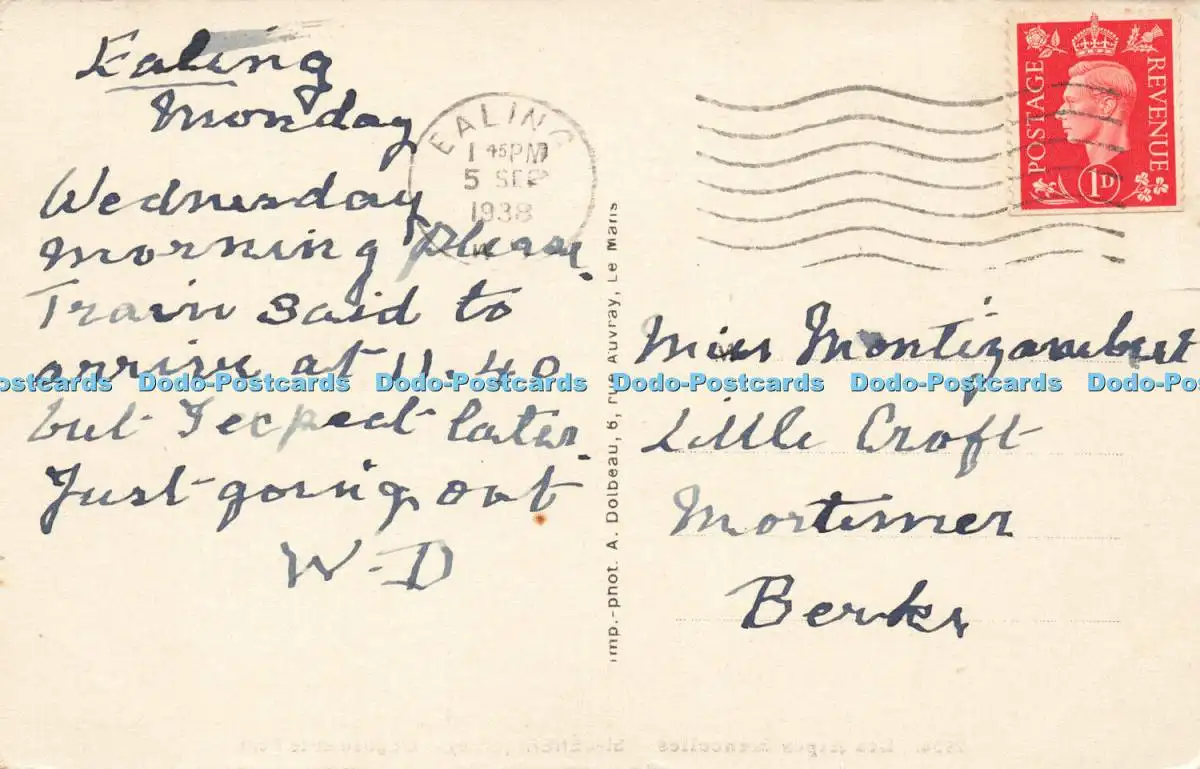 Ealing
Monday
Wednesday
morning please.
Train said to
arrive at 11.40
but I expect later.
Just going out
W-D
EALING
1 45 PM
5 SEP
1938
W
imp.-phot. A. Dolbeau, 6, rue Auvray, Le Mans
POSTAGE
REVENUE
1D
Miss Montizambert
Little Croft
Mortimer
Berks
Dodo-Postcards Dodo-Postcards Dodo-Postcards Dodo-Postcards Dodo-Postcards Dodo-Postcards